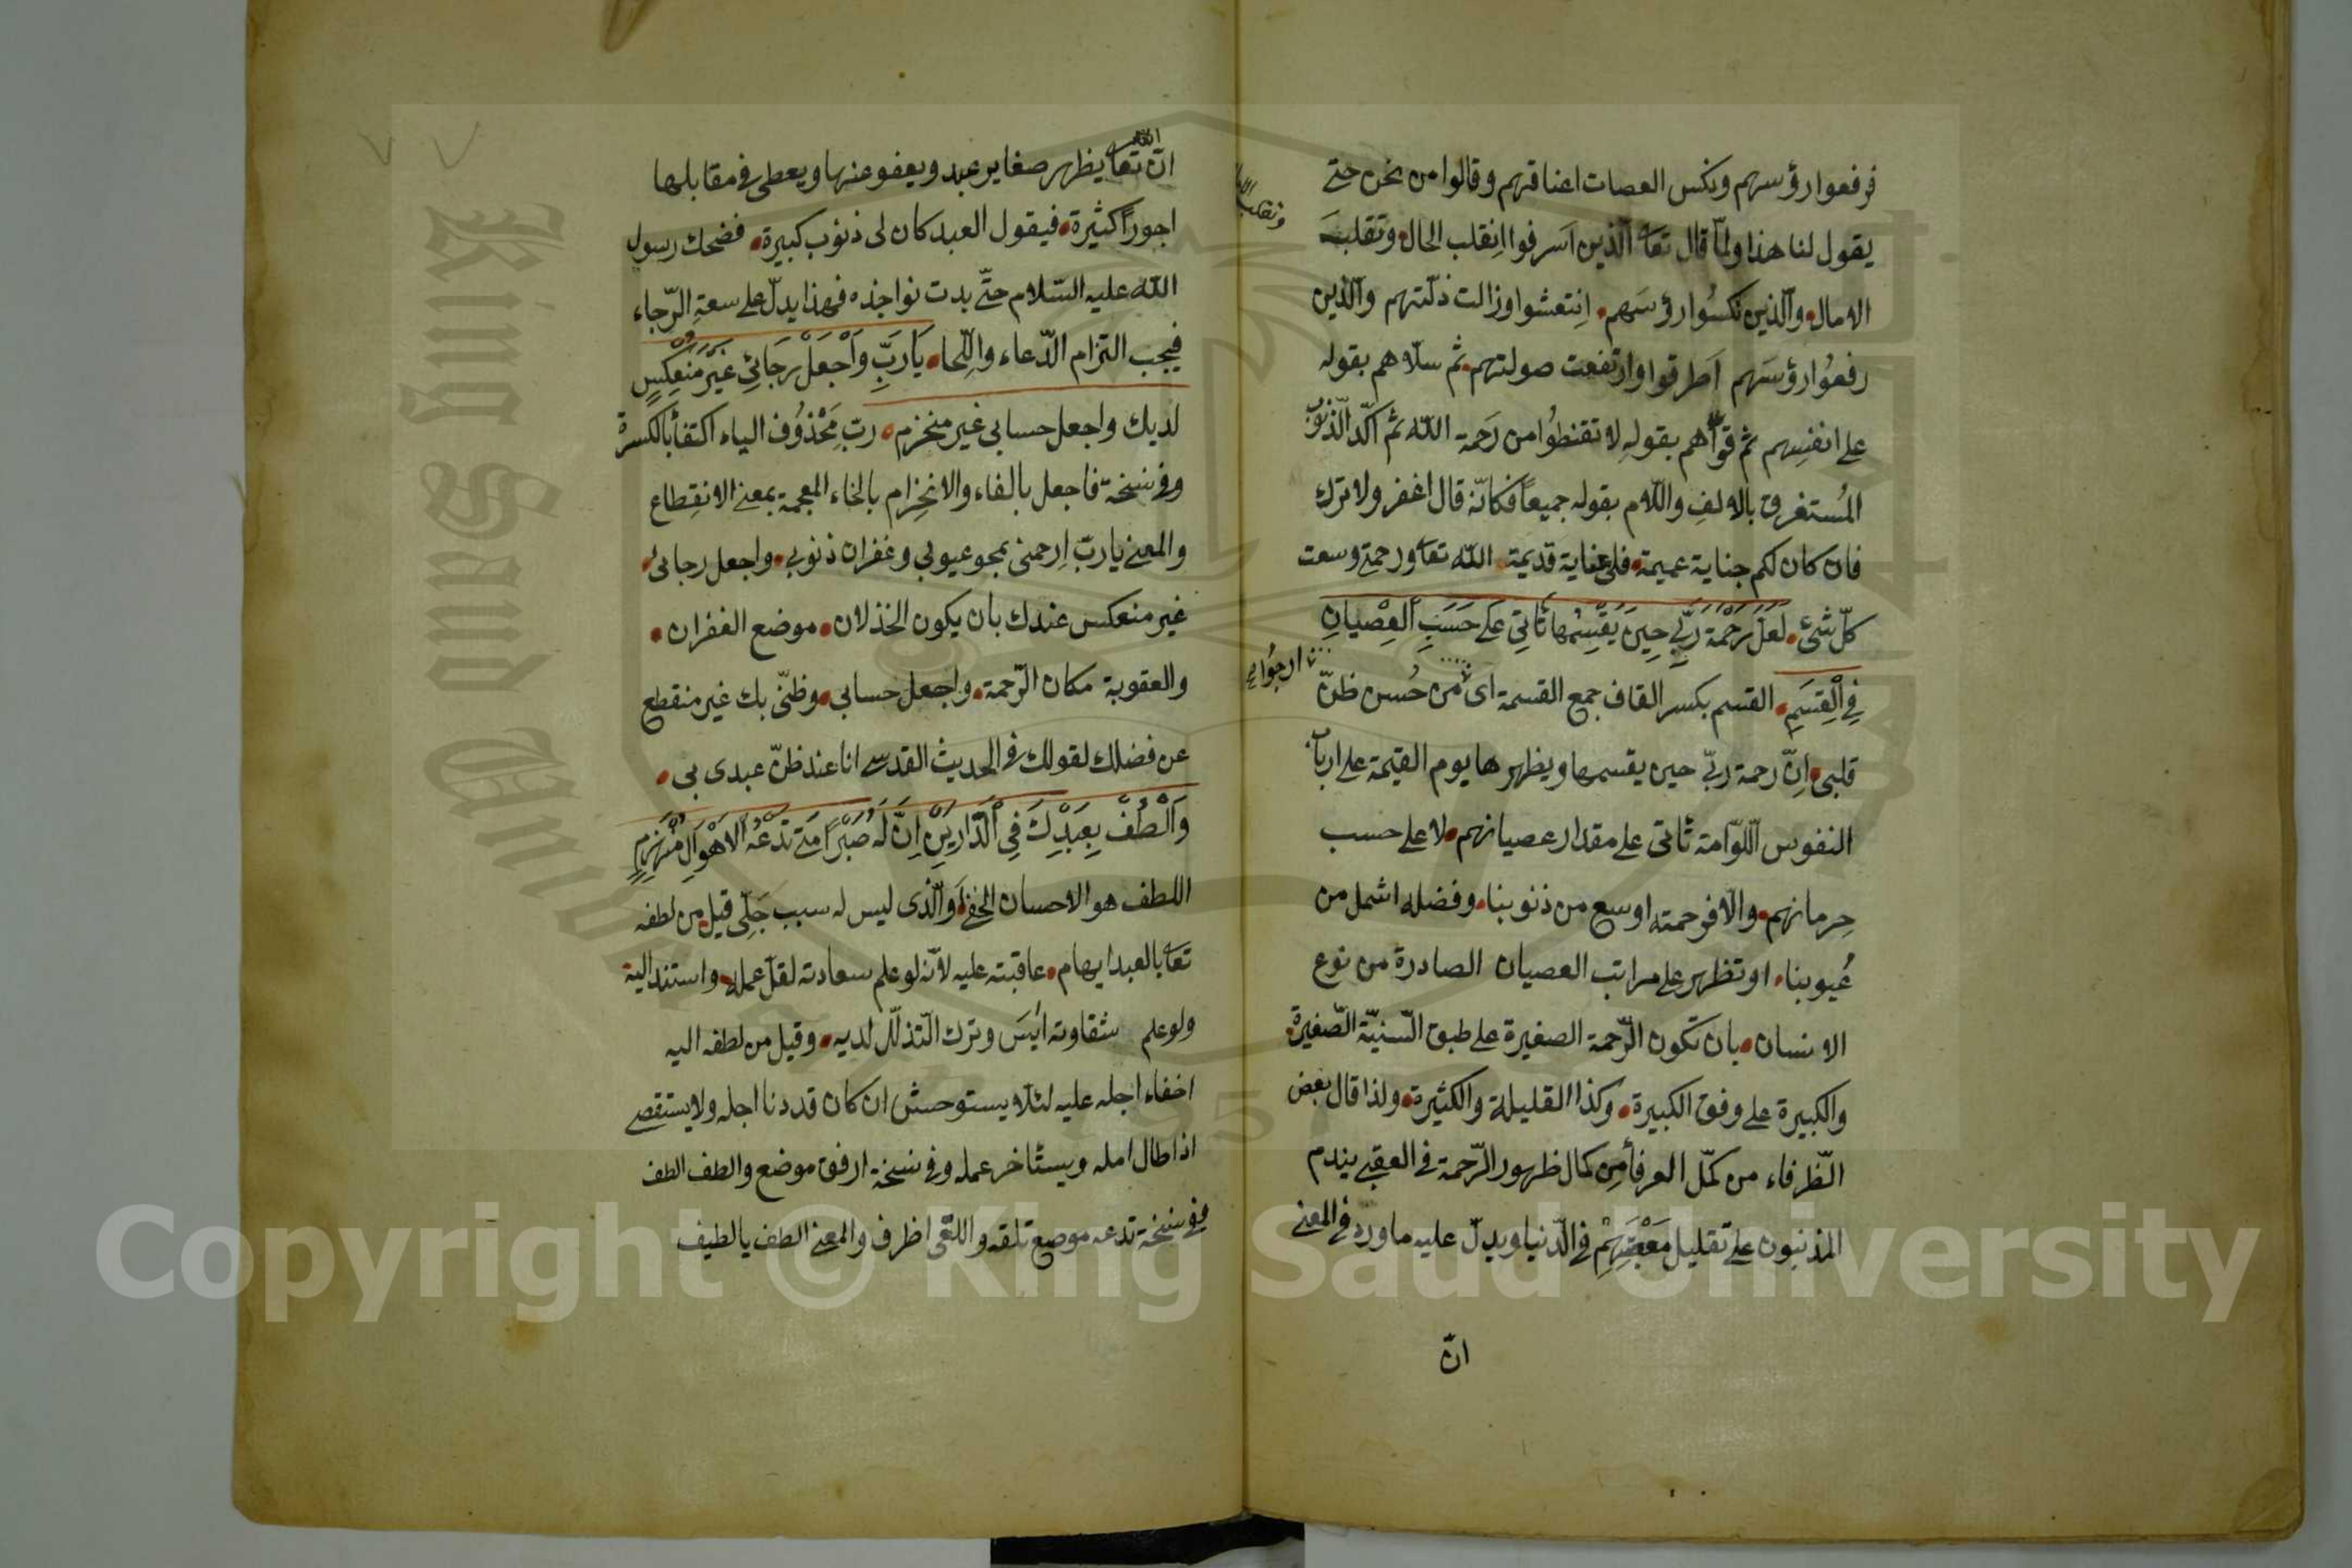 فرفعوا رؤسهم ونكس العصات اعناقهم وقالوا من نحن حتى
يقول لنا هذا ولمّا قال تعا الّذين اسرفوا اِنقلب الحال وتقلبت
الامال والّذين نكسُوا رؤسَهم اِنتعشوا وزالت ذلّتهم والّذين
رفعُوا رؤسَهم اَطرقوا وارتفعت صولتهم ثم سلاهم بقوله
على انفسِهم ثم قوّاهم بقولهِ لا تقنطُوا من رَحمة اللّه ثم اكّد الّذنوب
المُستغرق بالالفِ واللّام بقوله جميعاً فكانّه قال اغفر ولا ترك
فان كان لكم جناية عميمة فلى عناية قديمة اللّه تعا ورحمتى وسعت
كلّ شئ لَعَلَّ رَحْمَةَ رَبِّي حِينَ يَقْسِمُها تَاتِي عَلى حَسَبِ الْعِصْيانِ
فِي الْقِسَمِ القسم بكسر القاف جمع القسمة اى من حُسن ظنّ
قلبى اِنّ رحمة ربّي حين يقسمها ويظهرها يوم القيٰمة على ارباب
النفوس اللّوّامة تاتى على مقدار عصيانهم لا على حسب
حِرمانهم والّا فرحمته اوسع من ذنوبنا وفضله اشمل من
عُيوبنا او تظهر على مراتب العصيان الصادرة من نوع
الانسان بان تكون الرّحمة الصغيرة على طبق السّنيّة الصّغيرة
والكبيرة على وفق الكبيرة وكذا القليلة والكثيرة ولذا قال بعض
الظّرفاء من كمّل العرفأ مِن كمال ظهور الرّحمة في العقبى يندم
المذنبون على تقليل مَعْصِيَتِهِمْ في الدّنيا ويدلّ عليه ما ورد في المعنى
انّ
انّ اللّه تعا يظهر صغاير عبد ويعفو عنها ويعطى في مقابلها
اجوراً كثيرة فيقول العبد كان لى ذنوب كبيرة فضحك رسول
اللّه عليه السّلام حتّى بدت نواجذه فهذا يدلّ على سعةِ الرّجاء
فيجب التزام الدّعاء واللّجاء يَارَبِّ وَاجْعَلْ رَجَائِي غَيْرَ مُنْعَكِسٍ
لديك واجعل حسابي غير منخرم ربّ مَحْذوُف الياء اكتفأ بالكسرة
وفي نسخة فاجعل بالفاء والانخِرام بالخاء المعجمة بمعنى الانقِطاع
والمعنى يا ربّ اِرحمنى بمحو عيوبي وغفران ذنوبي واجعل رجائى
غير منعكس عندك بان يكون الخذلان موضع الغفران
والعقوبة مكان الرّحمة واجعل حسابي وظنّى بك غير منقطع
عن فضلك لقولك في الحديث القدسى انا عند ظنّ عبدى بي
وَالْطُفْ بِعَبْدِكَ فِي الدَّارَيْنِ اِنَّ لَهُ صَبْرًا مَتى تَدْعُهُ الاَهْوَالُ يَنْهَزِمِ
اللطف هو الاحسان الخفى والّذى ليس له سبب جَلّى قيل من لطفه
تعا بالعبد ايهام عاقبته عليه لانّه لو علم سعادته لقلّ عمله واستند اليه
ولو علم شقاوته ايَس وترك التّذلّل لديه وقيل من لطفه اليه
اخفاء اجله عليه لئلّا يستوحش ان كان قد دنا اجله ولا يستقصى
اذا طال امله ويستاخر عمله وفي نسخة ارفق موضع والطف الطف
وفي نسخة تدعه موضع تلقه واللّقى اظرف والمعنى الطف يا لطيف
Copyright © King Saud University
King Saud University
1957